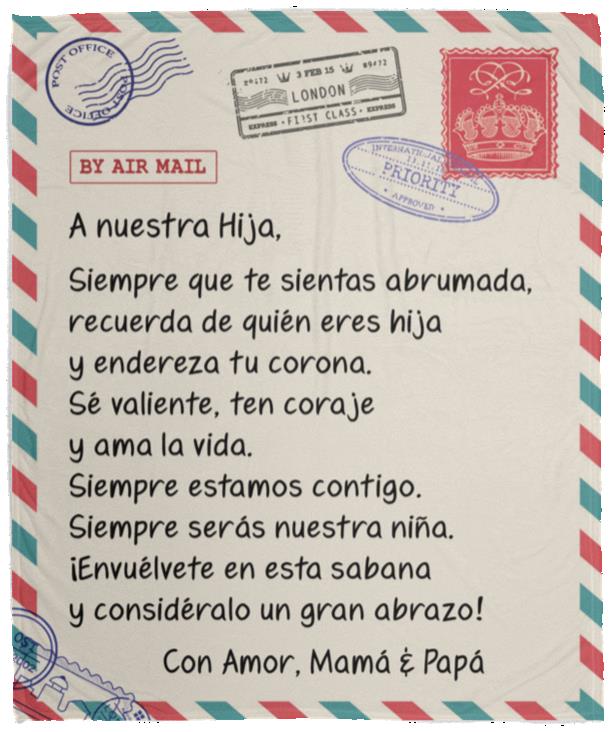 POST OFFICE
POST OFFICE
3 FEB 15
LONDON
EXPRESS · FIRST CLASS · EXPRESS
INTERNATIONAL
PRIORITY
· APPROVED ·
BY AIR MAIL
A nuestra Hija,
Siempre que te sientas abrumada,
recuerda de quién eres hija
y endereza tu corona.
Sé valiente, ten coraje
y ama la vida.
Siempre estamos contigo.
Siempre serás nuestra niña.
¡Envuélvete en esta sabana
y considéralo un gran abrazo!
Con Amor, Mamá & Papá